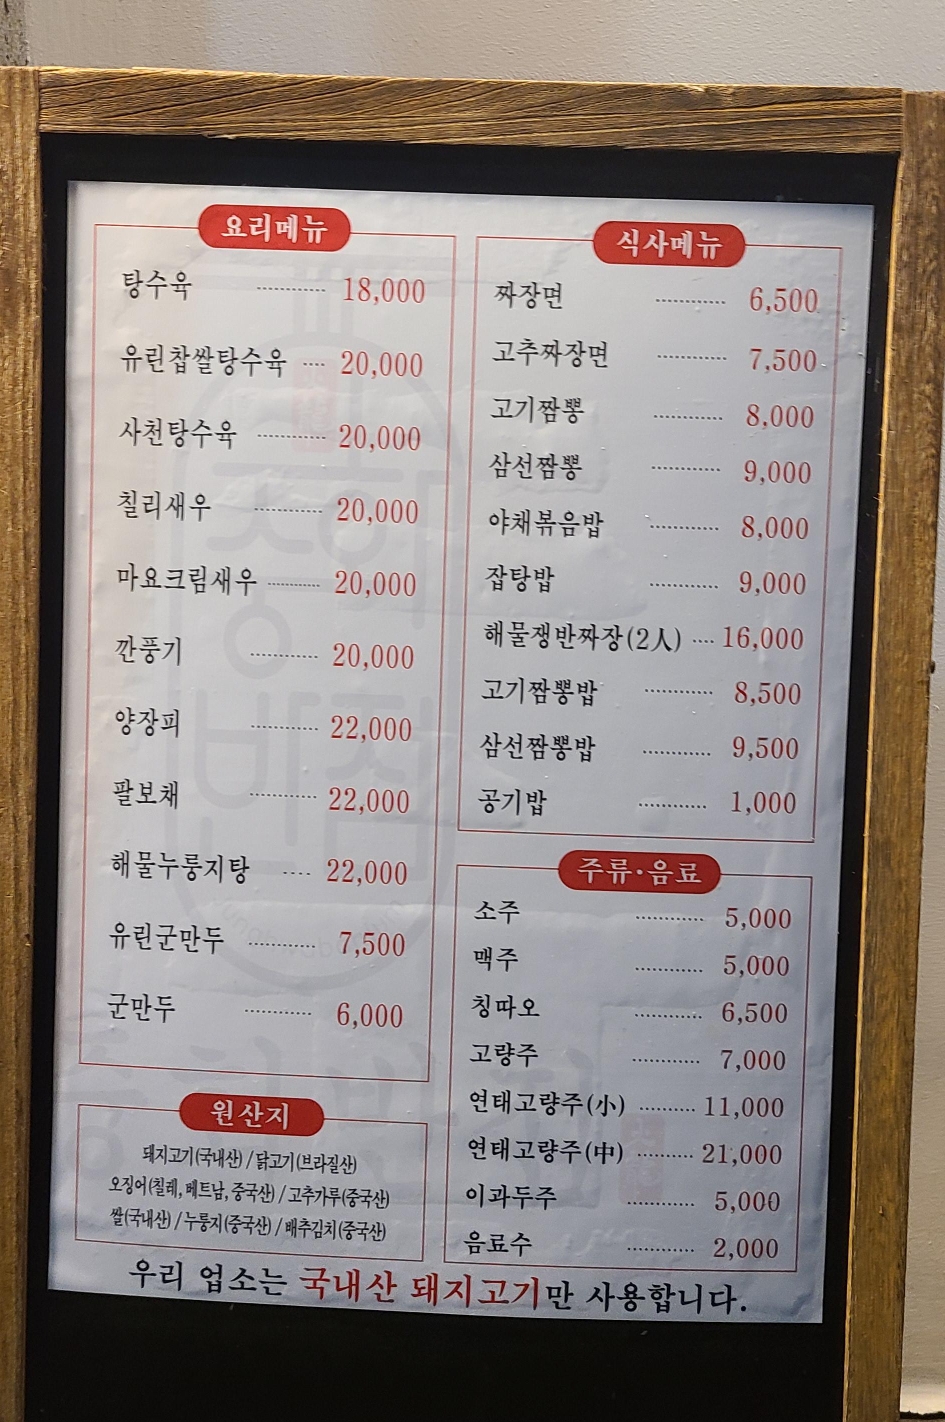 요리메뉴
탕수육 ............ 18,000
유린찹쌀탕수육 .... 20,000
사천탕수육 ............ 20,000
칠리새우 ............ 20,000
마요크림새우 ............ 20,000
깐풍기 ............ 20,000
양장피 ............ 22,000
팔보채 ............ 22,000
해물누룽지탕 .... 22,000
유린군만두 ............ 7,500
군만두 ............ 6,000
원산지
돼지고기(국내산) / 닭고기(브라질산)
오징어(칠레, 베트남, 중국산) / 고추가루(중국산)
쌀(국내산) / 누룽지(중국산) / 배추김치(중국산)
식사메뉴
짜장면 ............ 6,500
고추짜장면 ............ 7,500
고기짬뽕 ............ 8,000
삼선짬뽕 ............ 9,000
야채볶음밥 ............ 8,000
잡탕밥 ............ 9,000
해물쟁반짜장(2人) .... 16,000
고기짬뽕밥 ............ 8,500
삼선짬뽕밥 ............ 9,500
공기밥 ............ 1,000
주류·음료
소주 ............ 5,000
맥주 ............ 5,000
칭따오 ............ 6,500
고량주 ............ 7,000
연태고량주(小) .......... 11,000
연태고량주(中) .......... 21,000
이과두주 ............ 5,000
음료수 ............ 2,000
우리 업소는 국내산 돼지고기만 사용합니다.